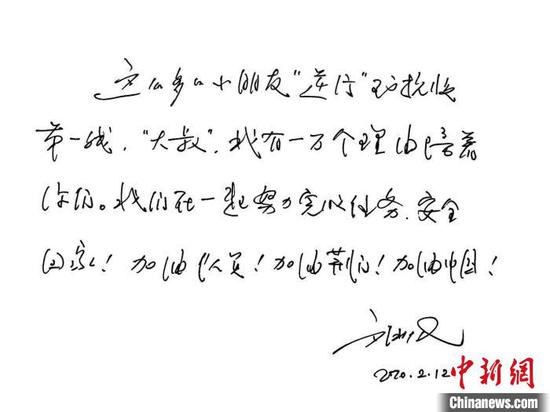 这么多小朋友“逆行”到抗疫
第一线,“大叔”,我有一万个理由陪着
你们。我们在一起努力完成任务、安全
回家!加油 !加油荆 !加油中国!
2020.2.12
中新網
Chinanews.com